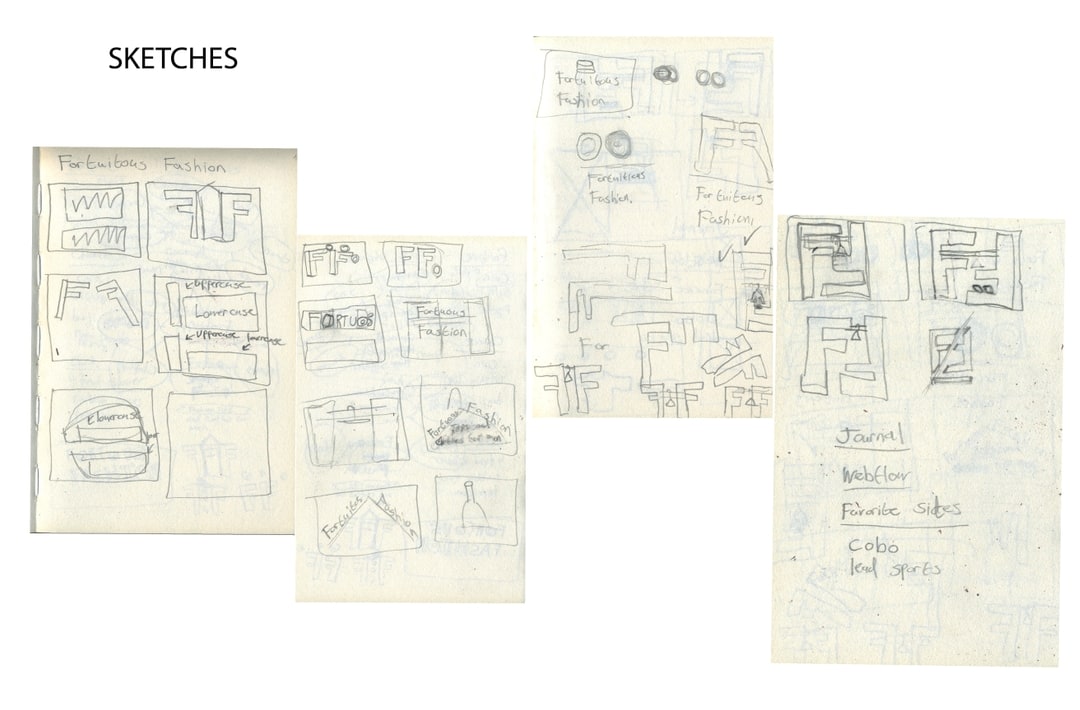 SKETCHES
Fortuitous Fashion
FF
FF
Uppercase
Lowercase
Uppercase lowercase
Lowercase
FF
FF
FORTUOS
Fortuous
Fastion
Fortuous Fashion
Fortuitos
Fortuitous
Fashion
Fortuitous
Fashion.
FF
Fortuitous
Fashion,
For
FF
FF
FF
Journal
Webflow
Favorite sides
Cobo
lead sports